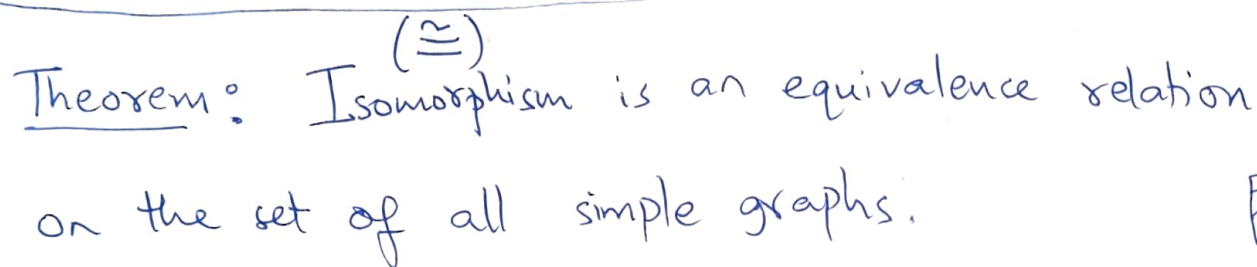 (≅)
Theorem: Isomorphism is an equivalence relation
on the set of all simple graphs.